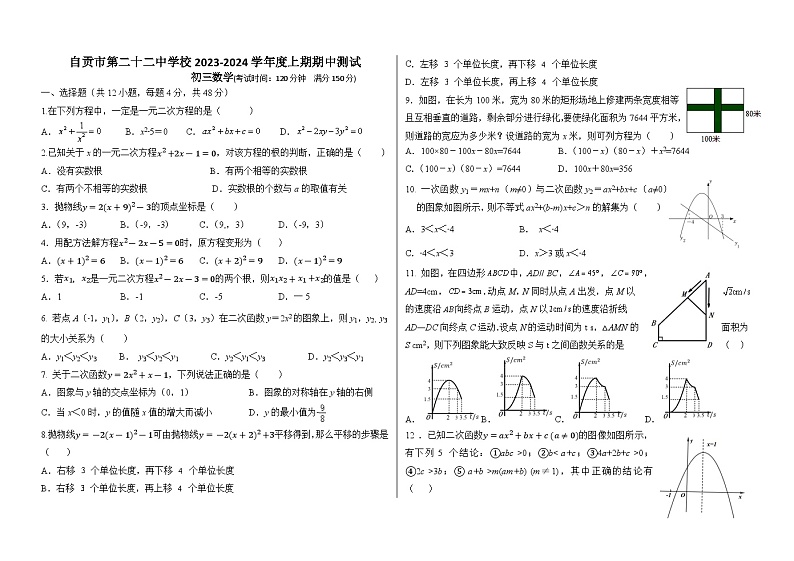 自贡市第二十二中学校 2023-2024 学年度上期期中测试
初三数学(考试时间：120分钟 满分 150 分)
一、选择题（共 12 小题，每题 4 分，共 48 分）
1.在下列方程中，一定是一元二次方程的是（ ）
A. x²+1/x²=0 B. x²-5=0 C. ax²+bx+c=0 D. x²-2xy-3y²=0
2.已知关于 x 的一元二次方程x²+2x-1=0，对该方程的根的判断，正确的是（ ）
A．没有实数根 B．有两个相等的实数根
C．有两个不相等的实数根 D．实数根的个数与 a 的取值有关
3．抛物线y=2(x+9)²-3的顶点坐标是（ ）
A．（9，-3） B．（-9，-3） C．（9，，3） D．（-9，3）
4．用配方法解方程x²-2x-5=0时，原方程变形为（ ）
A．(x+1)²=6 B．(x-1)²=6 C．(x+2)²=9 D．(x-1)²=9
5．若x₁，x₂是一元二次方程x²-2x-3=0的两个根，则x₁x₂+x₁+x₂的值是（ ）
A．1 B．-1 C．-5 D．－5
6. 若点 A（-1，y₁），B（2，y₂），C（3，y₃）在二次函数 y＝2x²的图象上，则 y₁，y₂，y₃
的大小关系为（ ）
A．y₁＜y₂＜y₃ B． y₃＜y₂＜y₁ C．y₂＜y₁＜y₃ D．y₂＜y₃＜y₁
7. 关于二次函数y=2x²+x-1，下列说法正确的是（ ）
A．图象与 y 轴的交点坐标为（0，1） B．图象的对称轴在 y 轴的右侧
C．当 x＜0 时，y 的值随 x 值的增大而减小 D．y 的最小值为-9/8
8.抛物线y=-2(x-1)²-1可由抛物线y=-2(x+2)²+3平移得到,那么平移的步骤是
（ ）
A．右移 3 个单位长度，再下移 4 个单位长度
B．右移 3 个单位长度，再上移 4 个单位长度
C．左移 3 个单位长度，再下移 4 个单位长度
D．左移 3 个单位长度，再上移 4 个单位长度
9．如图，在长为 100 米，宽为 80 米的矩形场地上修建两条宽度相等
且互相垂直的道路，剩余部分进行绿化,要使绿化面积为 7644 平方米，
则道路的宽应为多少米？设道路的宽为 x 米，则可列方程为（ ）
80米
100米
A．100×80－100x－80x=7644 B．（100－x）（80－x）＋x²=7644
C．（100－x）（80－x）=7644 D．100x＋80x=356
10. 一次函数 y₁=mx+n（m≠0）与二次函数 y₂=ax²+bx+c（a≠0）
的图象如图所示，则不等式 ax²+(b-m)x+c＞n 的解集为（ ）
A．3＜x＜-4 B． x＜-4
C．-4＜x＜3 D．x＞3 或 x＜-4
y
-4
O
3
x
y₂
y₁
11．如图，在四边形 ABCD 中，AD// BC，∠A=45°，∠C=90°，
AD=4cm，CD=3cm，动点 M，N 同时从点 A 出发，点 M 以 √2cm/s
的速度沿 AB向终点 B 运动，点 N 以1cm/s的速度沿折线
AD—DC 向终点 C 运动.设点 N 的运动时间为 t s，△AMN 的 面积为
S cm²，则下列图象能大致反映 S 与 t 之间函数关系的是 （ ）
A
M
N
B
C
D
S/cm² S/cm² S/cm² S/cm²
4 4 4 4
3 3 3 3
1.5 1.5 1.5 1.5
O 2 3 3.5 t/s O 2 3 3.5 t/s O 2 3 3.5 t/s O 2 3 3.5 t/s
A． B． C． D．
12．已知二次函数y=ax²+bx+c (a≠0)的图像如图所示，
有下列 5 个结论：①abc >0；②b< a+c；③4a+2b+c >0；
④2c >3b；⑤ a+b >m(am+b) (m≠1)，其中正确的结论有
（ ）
y
x=1
-1
O
x